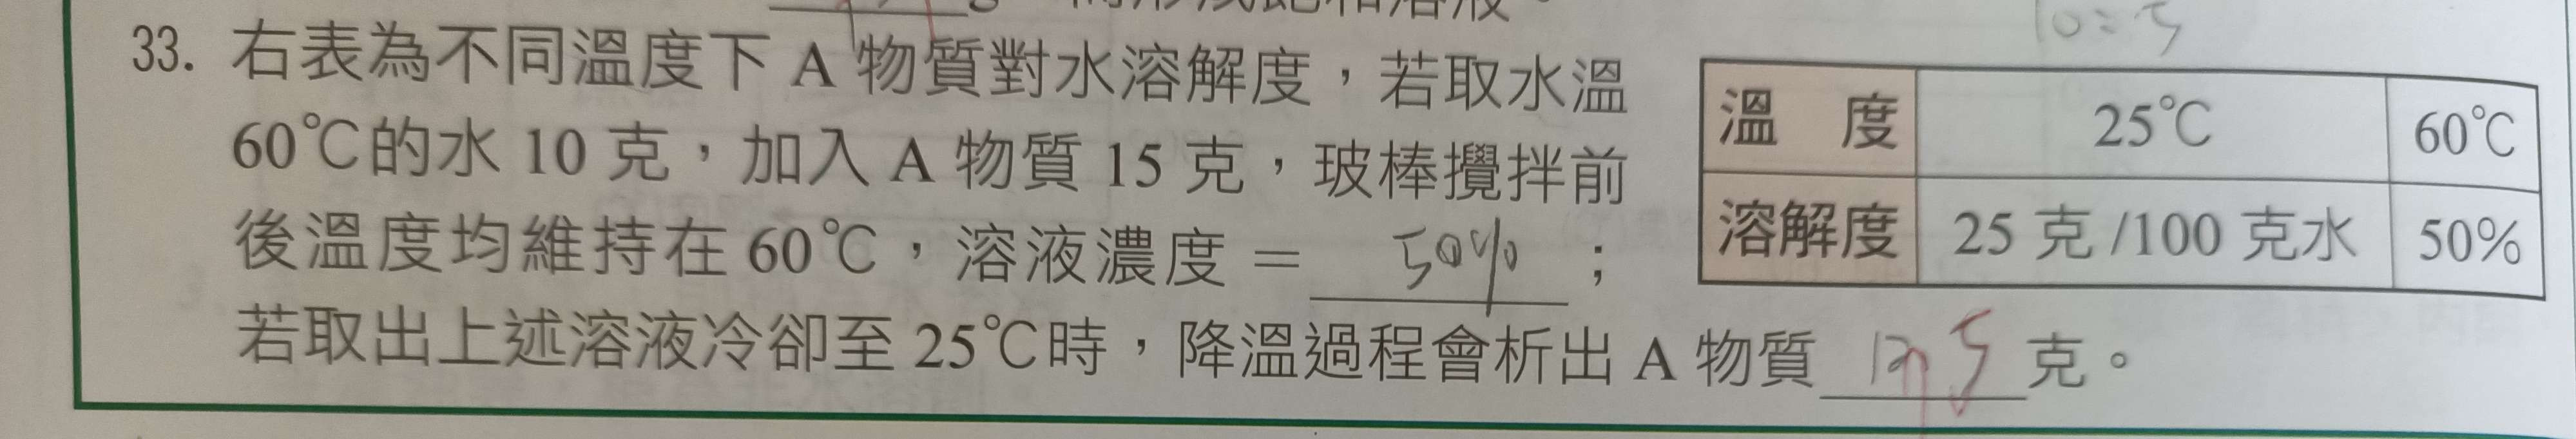 10=5
33. 右表為不同溫度下 A 物質對水溶解度，若取水溫
60℃的水 10 克，加入 A 物質 15 克，玻棒攪拌前
後溫度均維持在 60℃，溶液濃度＝ 50% ；
若取出上述溶液冷卻至 25℃時，降溫過程會析出 A 物質 5 克。
溫 度 25℃ 60℃
溶解度 25 克 /100 克水 50%